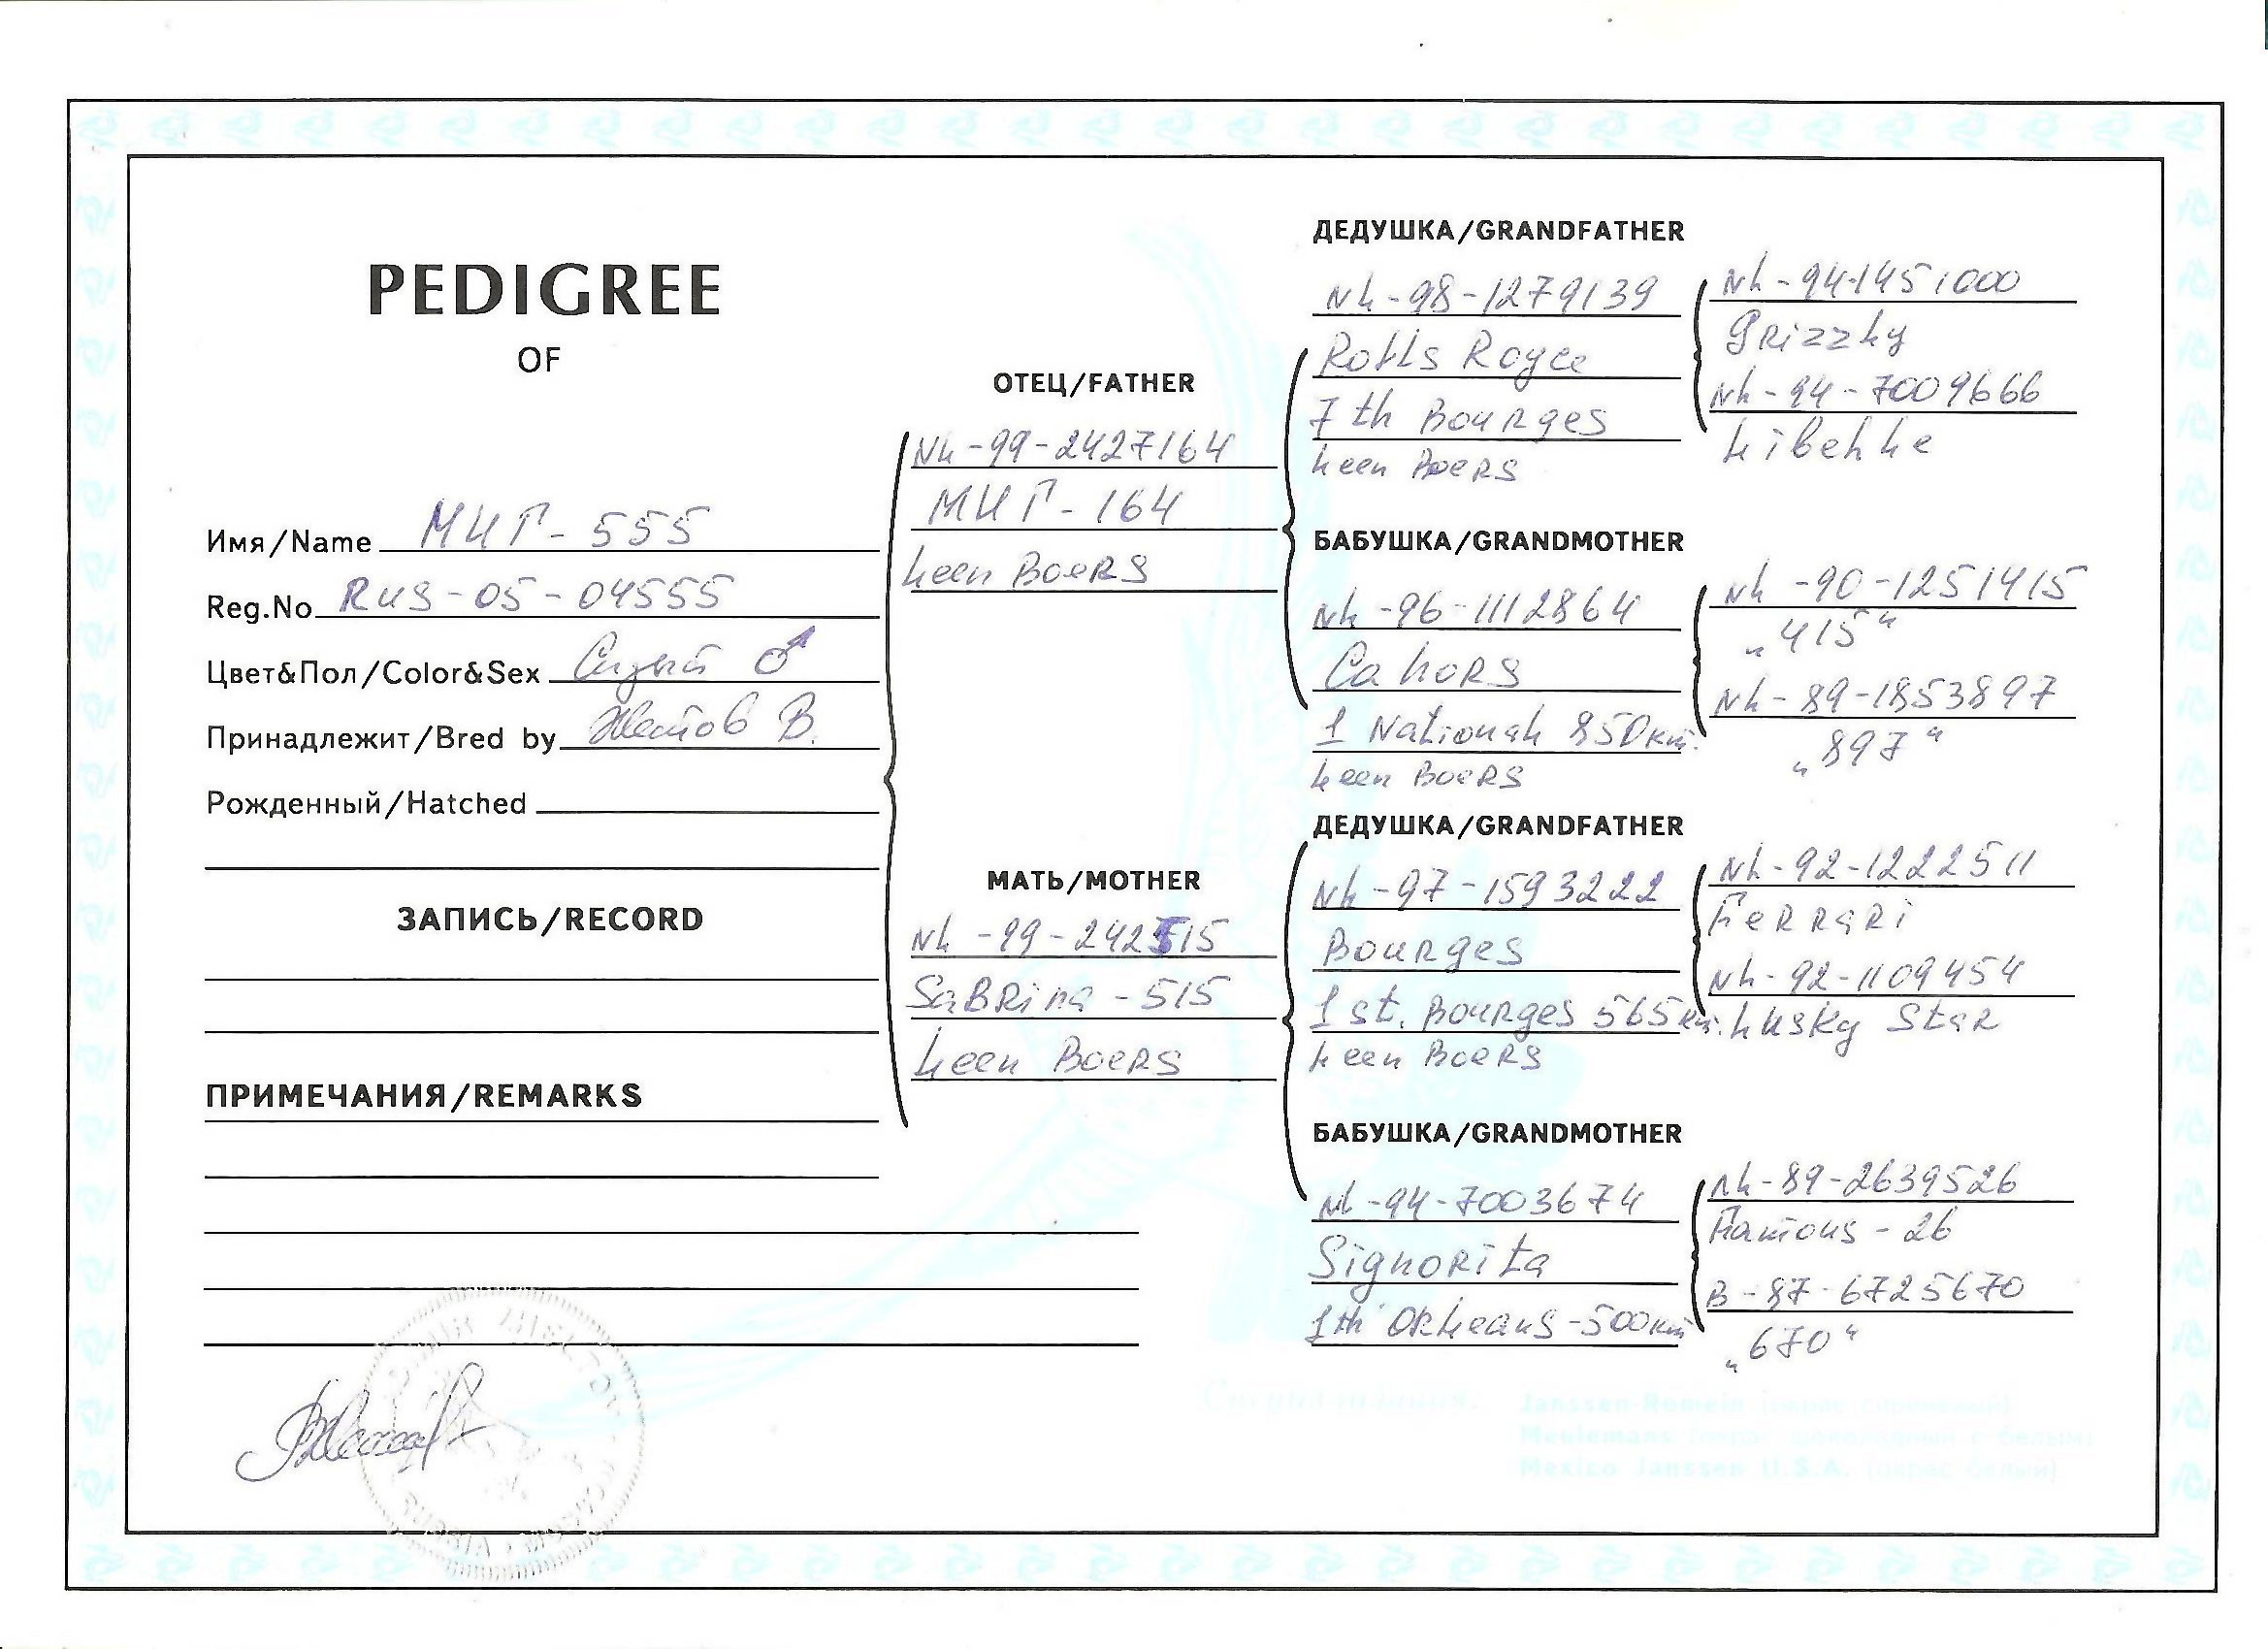 PEDIGREE
OF
Имя/Name МИГ-555
Reg.No Rus-05-04555
Цвет&Пол/Color&Sex Сизый ♂
Принадлежит/Bred by В.
Рожденный/Hatched
ЗАПИСЬ/RECORD
ПРИМЕЧАНИЯ/REMARKS
ОТЕЦ/FATHER
NL-99-2427164
МИГ-164
Leen Boers
МАТЬ/MOTHER
SaBRina-515
Leen Boers
ДЕДУШКА/GRANDFATHER
NL-98-1279139
Rolls Royce
7 th Bourges
Leen Boers
NL-94-1451000
Grizzly
NL-94-7009666
Libelle
БАБУШКА/GRANDMOTHER
NL-96-1112864
Cahors
1 National 850км.
Leen Boers
NL-90-1251415
„415"
NL-89-1853897
„897"
ДЕДУШКА/GRANDFATHER
NL-97-1593222
Bourges
1 st. Bourges 565км.
Leen Boers
NL-92-1222511
Ferrari
NL-92-1109454
Lusky Star
БАБУШКА/GRANDMOTHER
NL-94-7003674
Signorita
1th Orleans-500км
NL-89-2639526
Famous-26
B-87-6725670
„670"
Janssen-Romein
Meulemans
Mexico Janssen U.S.A.